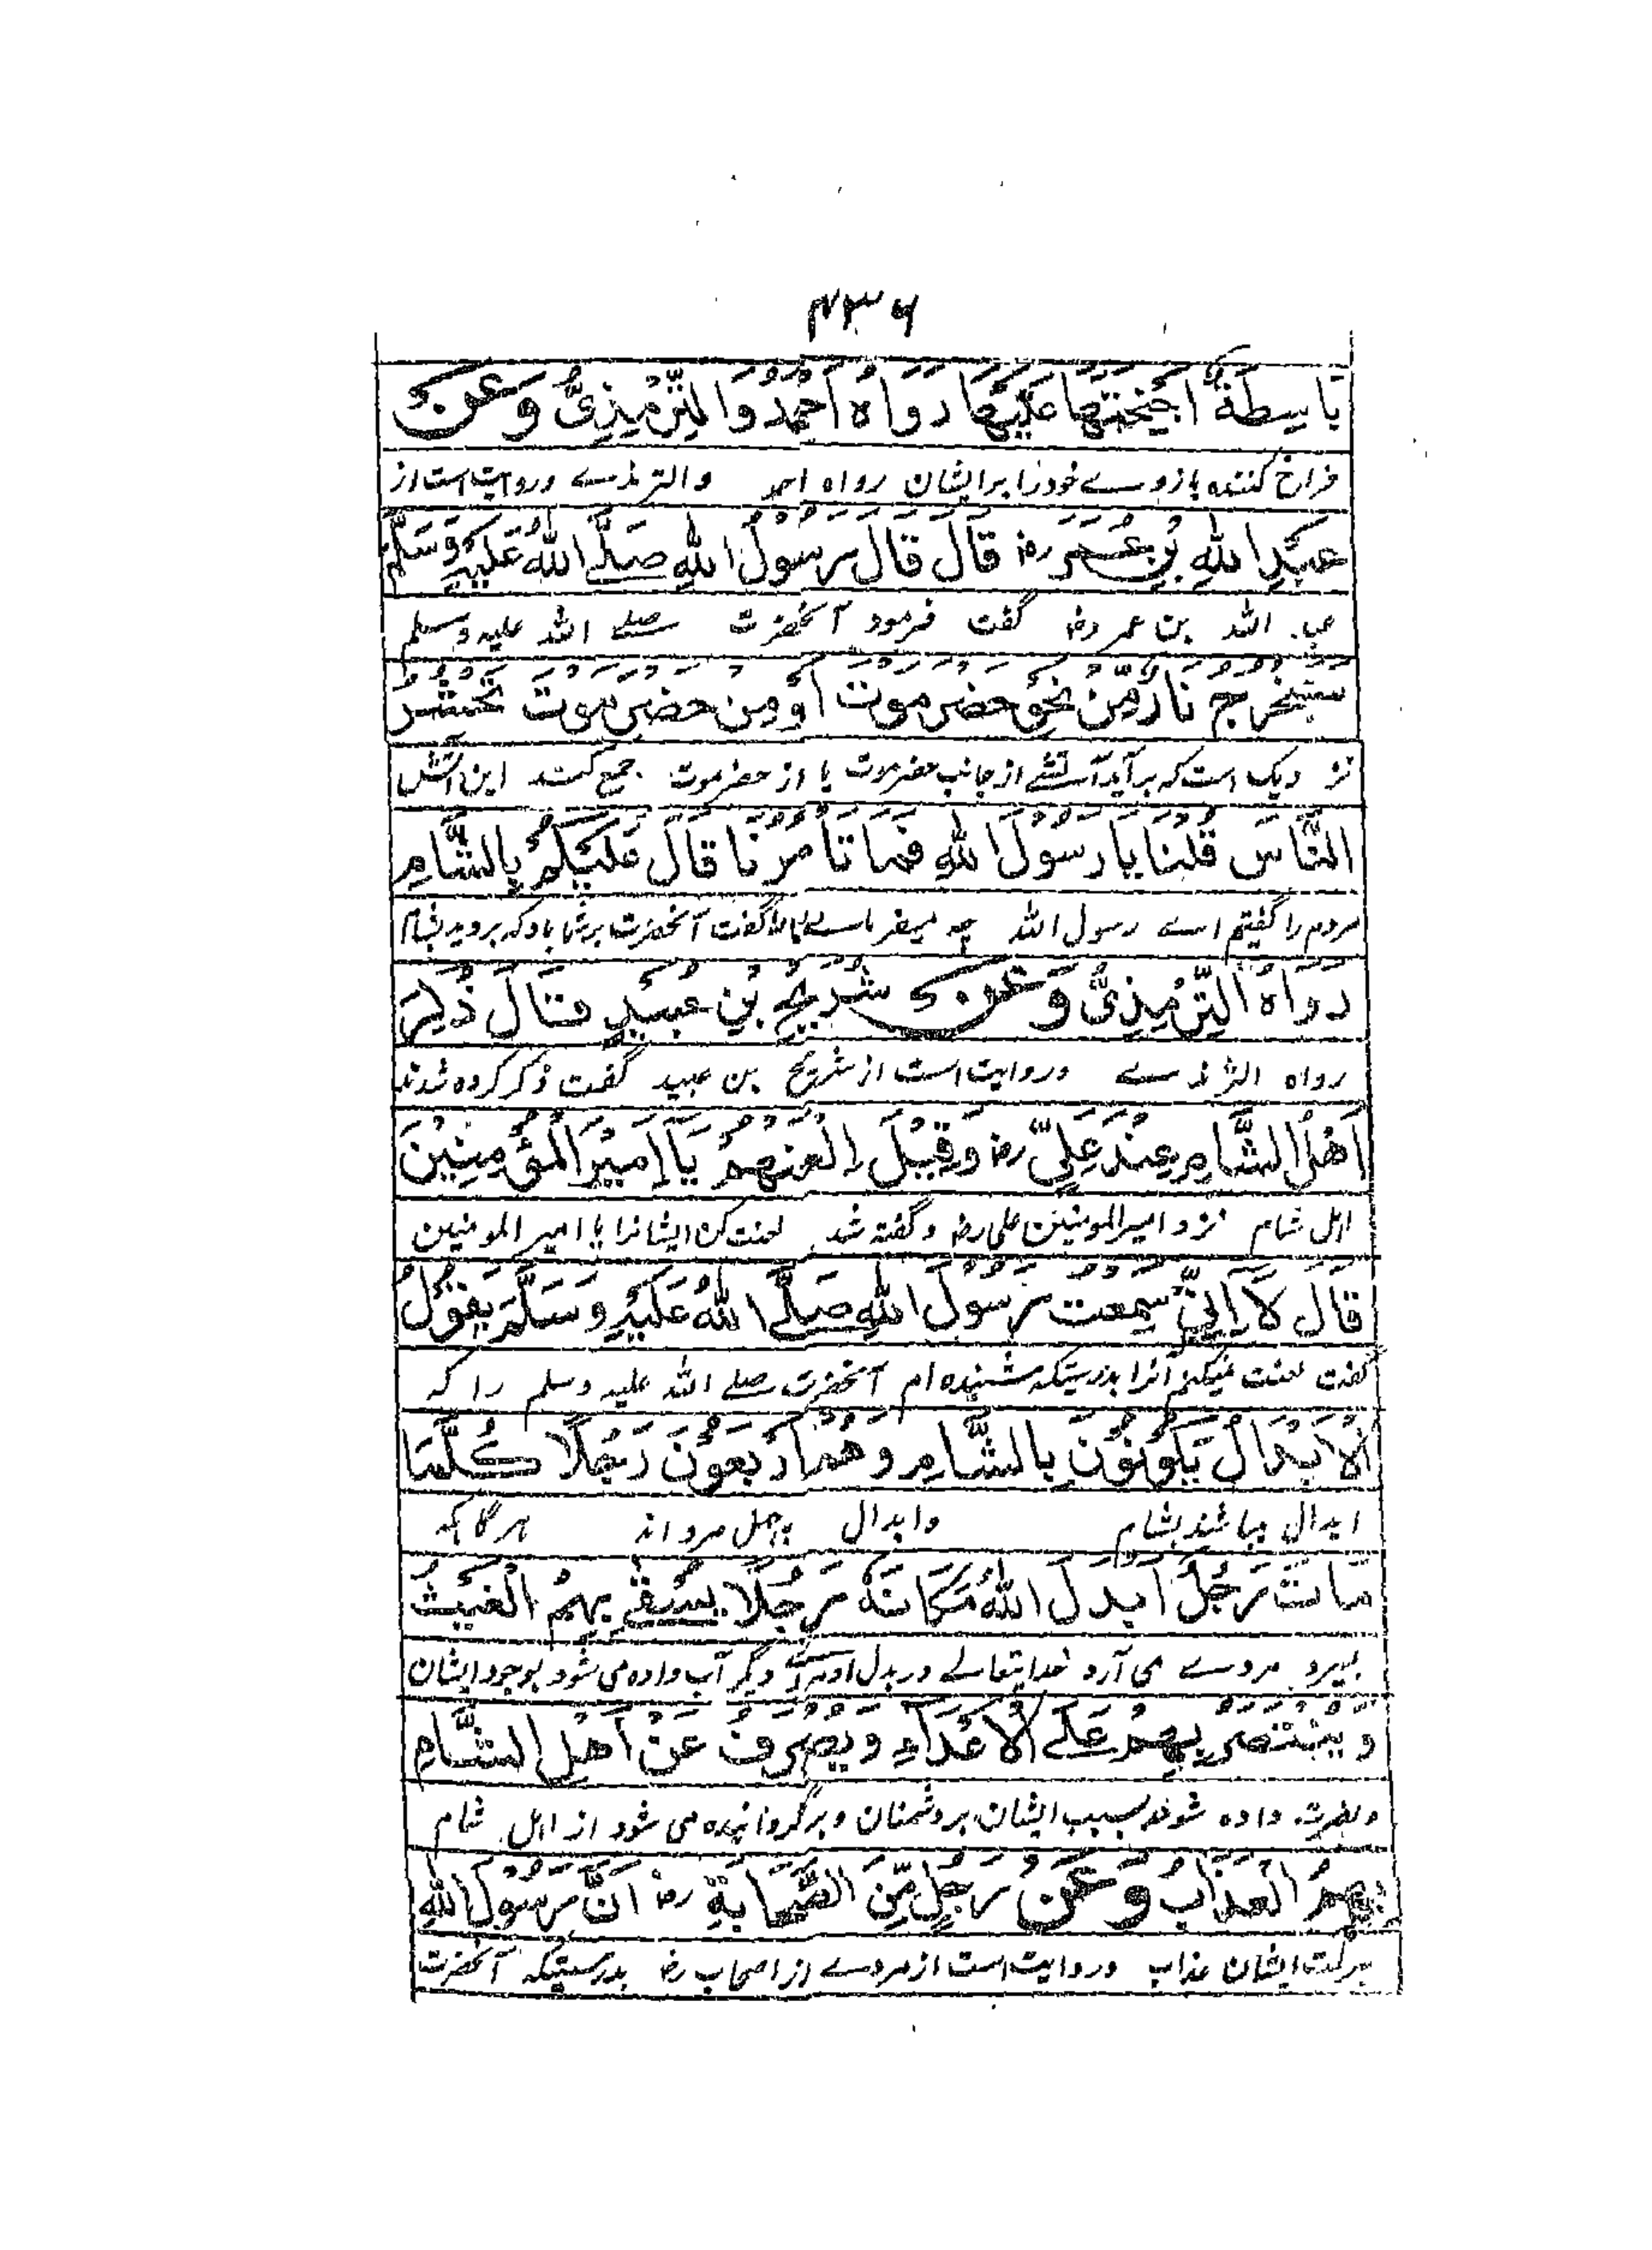 ۴۳۶
بَاسِطَةٌ اَجْنِحَتَهَا عَلَيْهَا رَوَاهُ اَحْمَدُ وَالتِّرْمِذِىُّ وَعَنْ
فراخ کننده بازوے خود را بر ایشان رواه احمد والترمذے وروایت است از
عَبْدِ اللهِ بْنِ عُمَرَ رض قَالَ قَالَ رَسُوْلُ اللهِ صَلَّے اللهُ عَلَيْهِ وَسَلَّمَ
الله بن عمر رض گفت فرمود آنحضرت صلے الله علیه وسلم
سَتَخْرُجُ نَارٌ مِّنْ نَحْوِ حَضْرَمَوْتَ اَوْ مِنْ حَضْرَمَوْتَ تَحْشُرُ
نزدیک است که برآید آتشے از جانب حضرموت یا از حضرموت جمع کند این آتش
النَّاسَ قُلْنَا يَا رَسُوْلَ اللهِ فَمَا تَأْمُرُنَا قَالَ عَلَيْكُمْ بِالشَّامِ
مردم را گفتیم اے رسول الله چه میفرماے مارا گفت آنحضرت بر شما باد که بروید بشام
رَوَاهُ التِّرْمِذِىُّ وَعَنْ شُرَيْحِ بْنِ عُبَيْدٍ قَالَ ذُكِرَ
رواه الترمذے وروایت است از شریح بن عبید گفت ذکر کرده شدند
اَهْلُ الشَّامِ عِنْدَ عَلِيٍّ رض وَقِيْلَ الْعَنْهُمْ يَا اَمِيْرَ الْمُؤْمِنِيْنَ
اهل شام نزد امیر المومنین علی رض وگفته شد لعنت کن ایشانرا یا امیر المومنین
قَالَ لَا اِنِّىْ سَمِعْتُ رَسُوْلَ اللهِ صَلَّے اللهُ عَلَيْهِ وَسَلَّمَ يَقُوْلُ
گفت لعنت نمیکنم آنرا بدرستیکه شنیده ام آنحضرت صلے الله علیه وسلم را که
اَلْاَبْدَالُ يَكُوْنُوْنَ بِالشَّامِ وَهُمْ اَرْبَعُوْنَ رَجُلًا كُلَّمَا
ابدال میباشند بشام وابدال چهل مرد اند هر گاه که
مَاتَ رَجُلٌ اَبْدَلَ اللهُ مَكَانَهٗ رَجُلًا يُسْقٰے بِهِمُ الْغَيْثُ
بمیرد مردے می آرد خدایتعالے در بدل او دیگر آب داده می شود بوجود ایشان
وَيُنْتَصَرُ بِهِمْ عَلَے الْاَعْدَاءِ وَيُصْرَفُ عَنْ اَهْلِ الشَّامِ
ونصرت داده شوند بسبب ایشان بر دشمنان وبرگردانیده می شود از اهل شام
بِهِمُ الْعَذَابُ وَعَنْ رَجُلٍ مِّنَ الصَّحَابَةِ رض اَنَّ رَسُوْلَ اللهِ
ببرکت ایشان عذاب وروایت است از مردے از اصحاب رض بدرستیکه آنحضرت